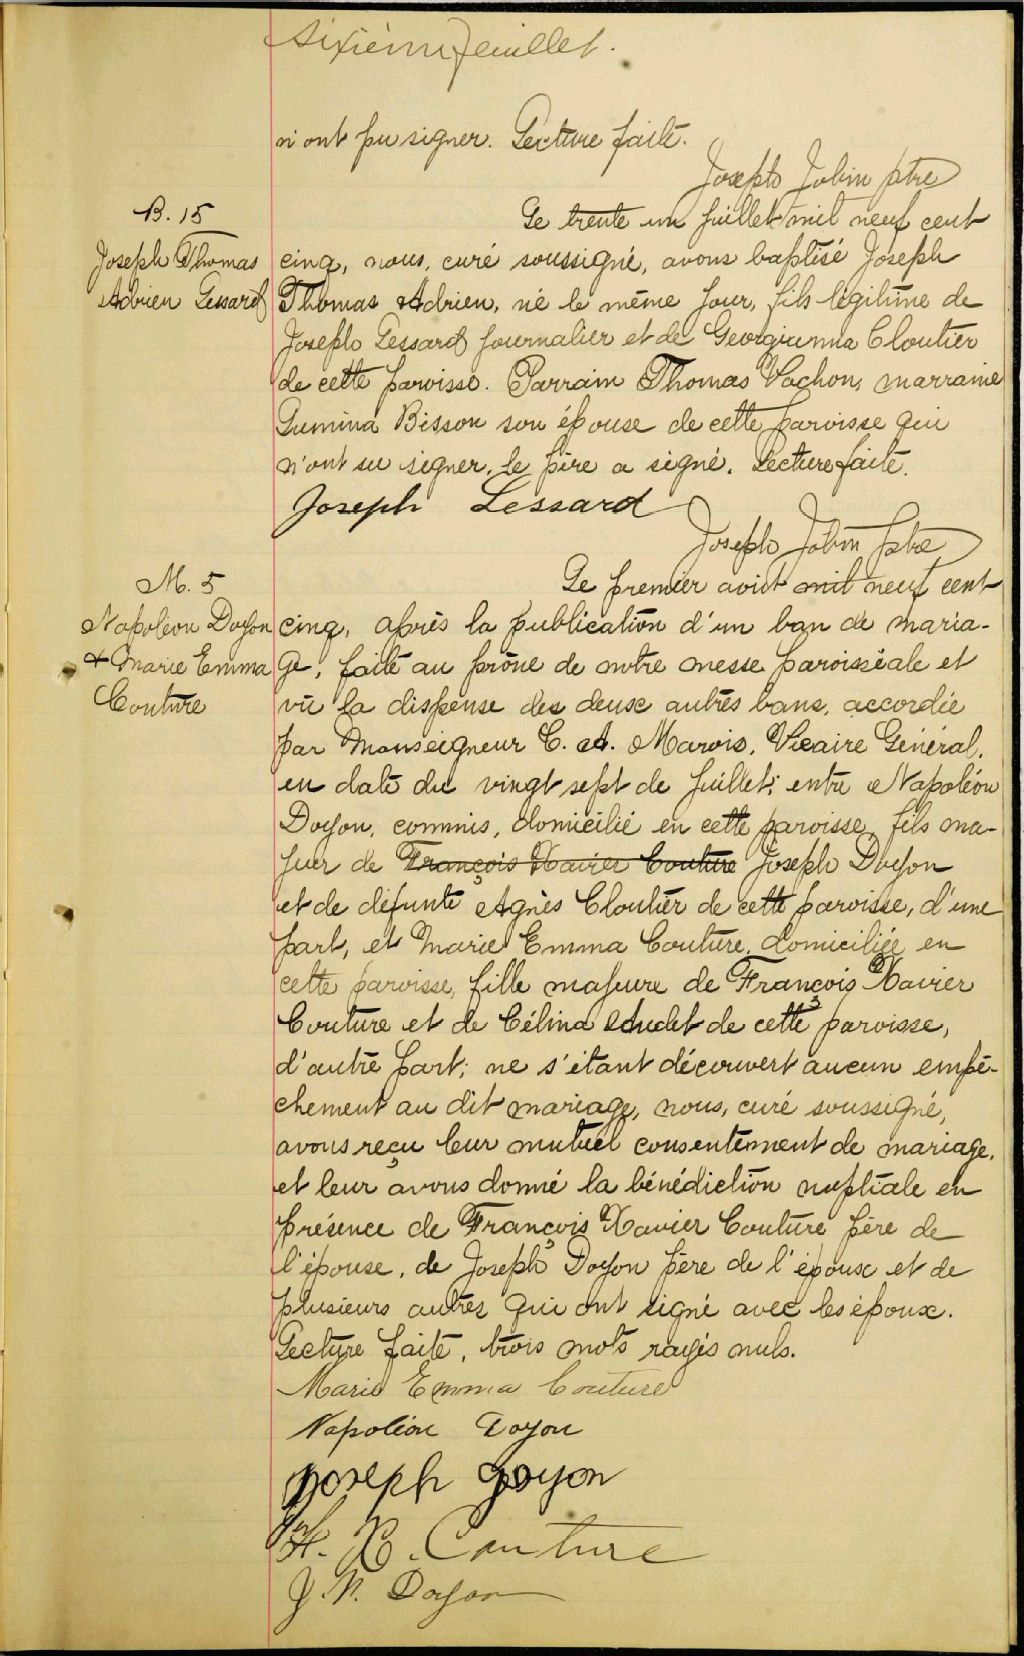 Sixième feuillet.
n'ont pu signer. Lecture faite.
Joseph Jobin ptre
B. 15
Joseph Thomas
Adrien Lessard
Le trente un juillet mil neuf cent
cinq, nous, curé soussigné, avons baptisé Joseph
Thomas Adrien, né le même jour, fils légitime de
Joseph Lessard journalier et de Georgianna Cloutier
de cette paroisse. Parrain Thomas Vachon, marraine
Lumina Bisson son épouse de cette paroisse qui
n'ont su signer, le père a signé. Lecture faite.
Joseph Lessard
Joseph Jobin ptre
M. 5
Napoléon Doyon
& Marie Emma
Couture
Le premier août mil neuf cent
cinq, après la publication d'un ban de maria-
ge, faite au prône de notre messe paroissiale et
vu la dispense des deux autres bans, accordée
par Monseigneur C. A. Marois, Vicaire Général,
en date du vingt sept de juillet; entre Napoléon
Doyon, commis, domicilié en cette paroisse, fils ma-
jeur de François Xavier Couture Joseph Doyon
et de défunte Agnès Cloutier de cette paroisse, d'une
part, et Marie Emma Couture, domiciliée en
cette paroisse, fille majeure de François Xavier
Couture et de Célina Audet de cette paroisse,
d'autre part; ne s'étant découvert aucun empê-
chement au dit mariage, nous, curé soussigné,
avons reçu leur mutuel consentement de mariage,
et leur avons donné la bénédiction nuptiale en
présence de François Xavier Couture père de
l'épouse, de Joseph Doyon père de l'époux et de
plusieurs autres qui ont signé avec les époux.
Lecture faite, trois mots rayés nuls.
Marie Emma Couture
Napoléon Doyon
Joseph Doyon
F. X. Couture
J. N. Doyon